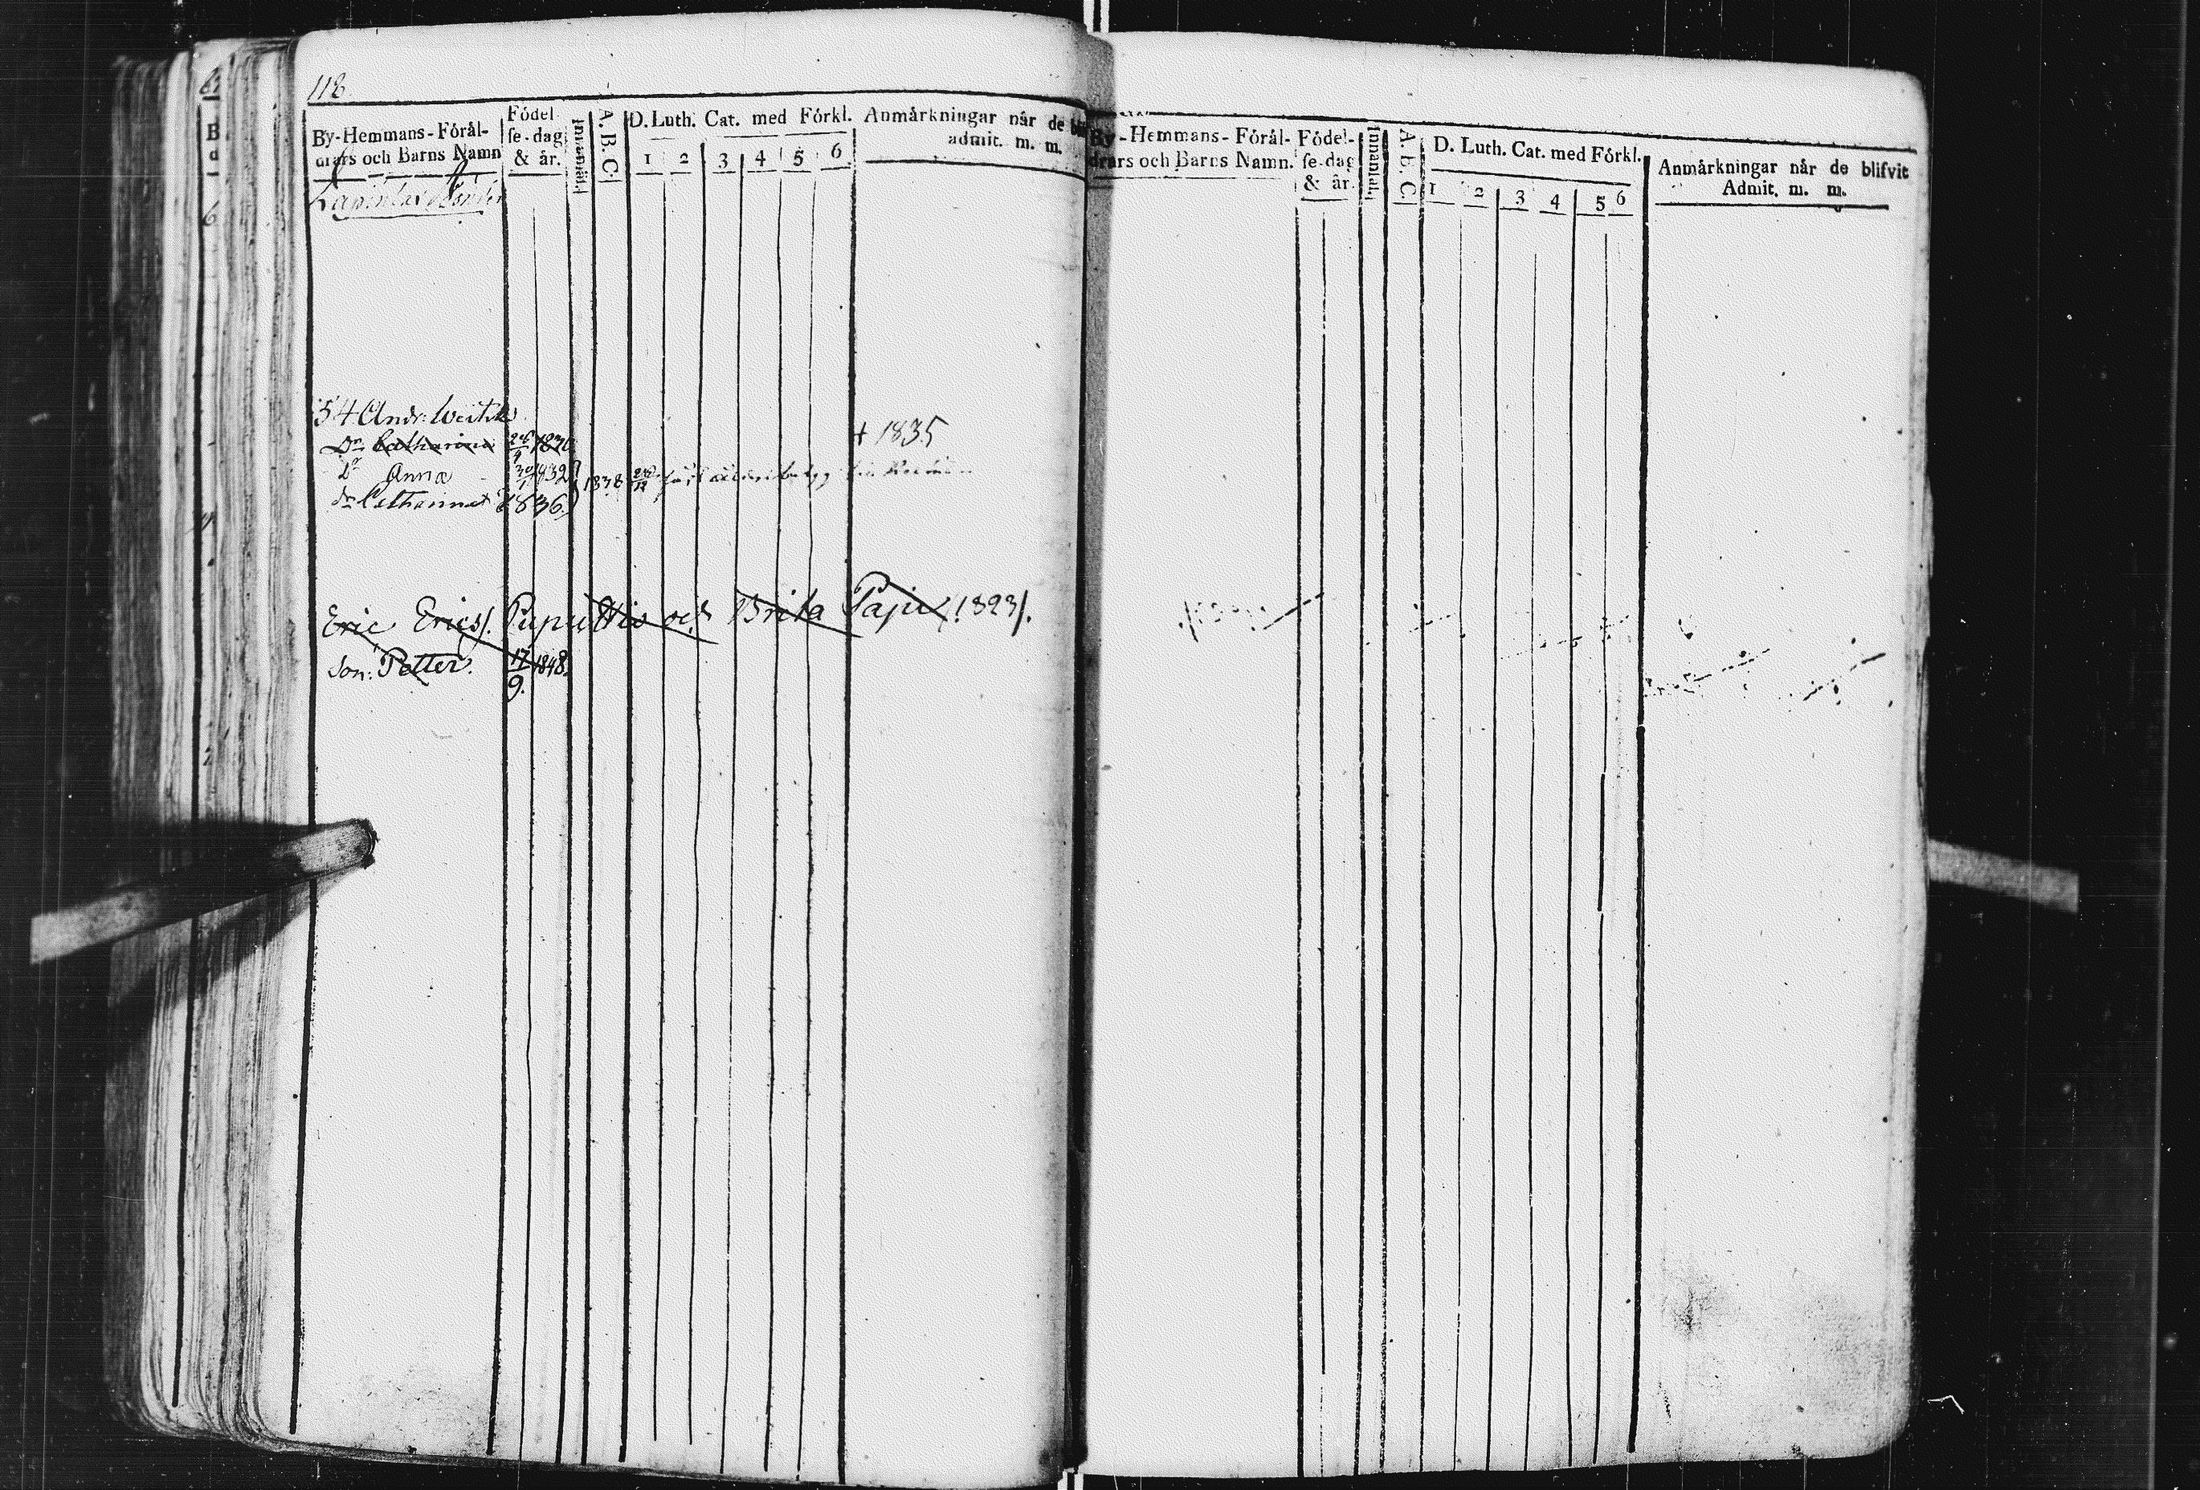 118.
By-Hemmans-Förål-
drars och Barns Namn
Födel
se-dag
& år.
Innantal.
A. B. C.
D. Luth. Cat. med Förkl.
1 2 3 4 5 6
Anmårkningar når de
admit. m. m.
54 Andr:
Dr Catharina 1830 + 1835
Dr Anna 1832
dr Catharina 1836 1838
Eric Erics/. Puputtis och Brita Paju /1823/.
Son: Petter. 17/9. 1848.
By-Hemmans-Förål-
drars och Barns Namn.
Födel-
se-dag
& år.
Innantal.
A. b. C.
D. Luth. Cat. med Förkl.
1 2 3 4 5 6
Anmårkningar når de blifvit
Admit. m. m.